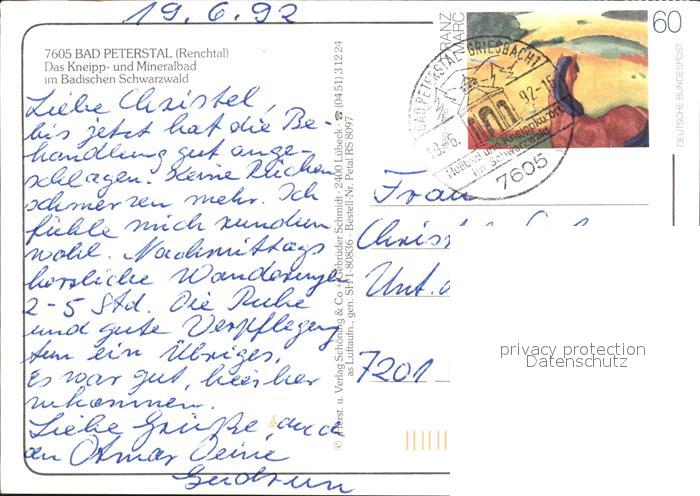 19.6.92
7605 BAD PETERSTAL (Renchtal)
Das Kneipp- und Mineralbad
im Badischen Schwarzwald
Liebe Christel,
bis jetzt hat die Be-
handlung gut ange-
schlagen. Keine Rücken
schmerzen mehr. Ich
fühle mich rundum
wohl. Nachmittags
herrliche Wanderungen
2-5 Std. Die Ruhe
und gute Verpflegung
tun ein Übriges.
Es war gut, hierher
zukommen.
Liebe Grüße auch
an Otmar Deine
Gudrun
© Herst. u. Verlag Schöning & Co + Gebrüder Schmidt · 2400 Lübeck · ☎ (04 51) 3 12 24
as Luftaufn.. gen. SH 1-80836 - Bestell-Nr. Petal RS 8097
FRANZ
MARC
60
DEUTSCHE BUNDESPOST
BAD PETERSTAL-GRIESBACH 1
92-16
Heilbad und Kneippkurort
im Schwarzwald
7605
Frau
Chris
Unt.
7201
privacy protection
Datenschutz